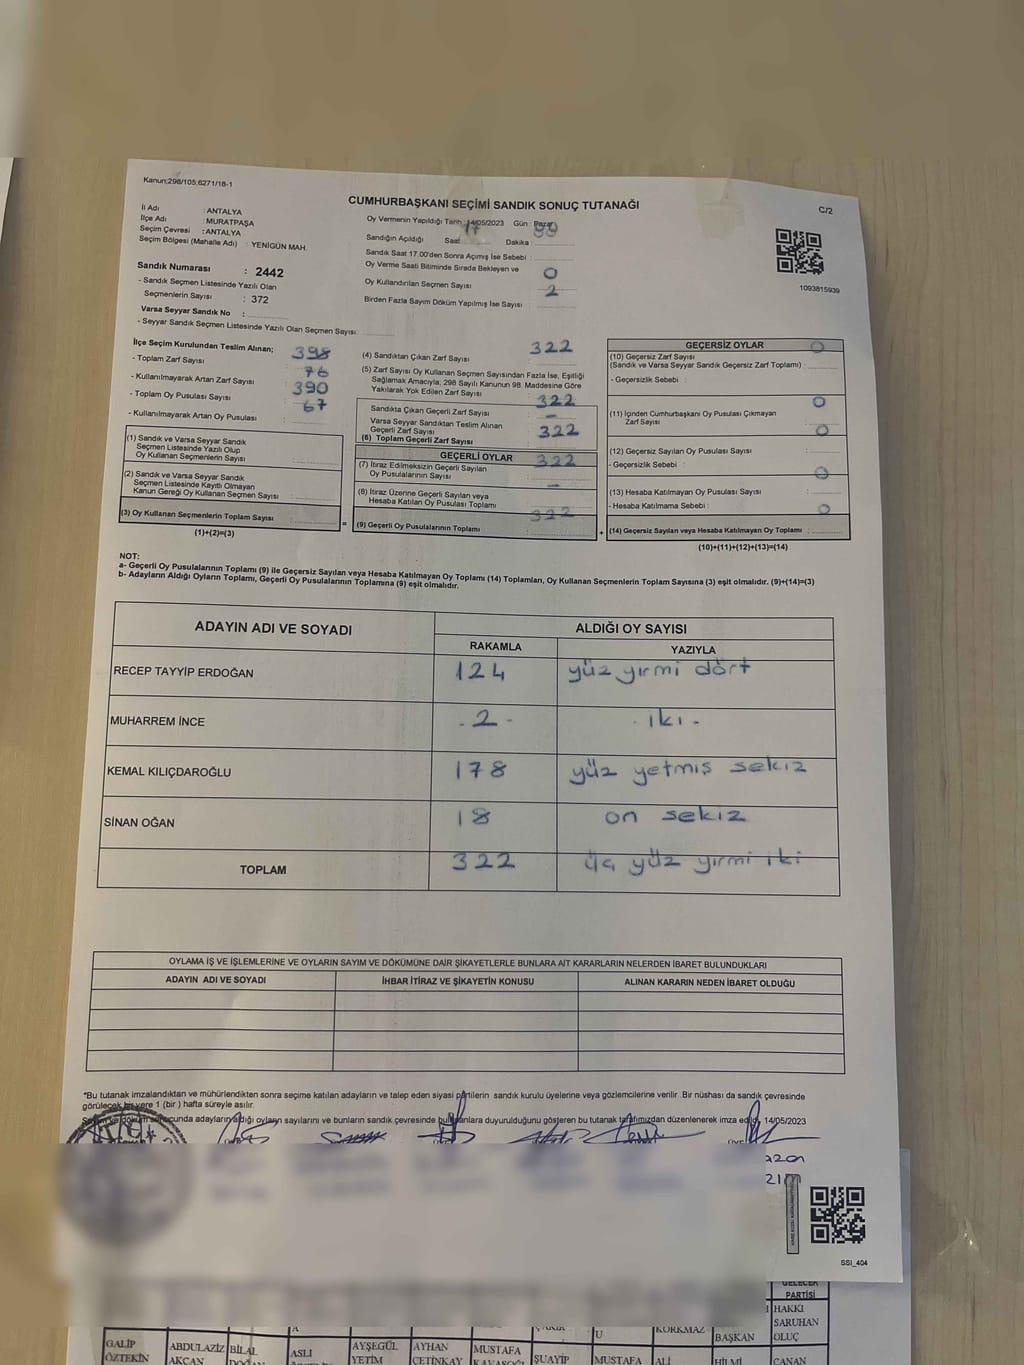 Kanun;298/105;6271/18-1
CUMHURBAŞKANI SEÇİMİ SANDIK SONUÇ TUTANAĞI
C/2
İl Adı : ANTALYA
İlçe Adı : MURATPAŞA
Seçim Çevresi : ANTALYA
Seçim Bölgesi (Mahalle Adı) : YENİGÜN MAH.
Oy Vermenin Yapıldığı Tarih 14/05/2023 Gün : Pazar
Sandığın Açıldığı Saat 17 Dakika :
Sandık Saat 17.00'den Sonra Açımış İse Sebebi :
Oy Verme Saati Bitiminde Sırada Bekleyen ve
Oy Kullandırılan Seçmen Sayısı 0
Birden Fazla Sayım Döküm Yapılmış İse Sayısı 2
1093815939
Sandık Numarası : 2442
- Sandık Seçmen Listesinde Yazılı Olan
Seçmenlerin Sayısı : 372
Varsa Seyyar Sandık No :
- Seyyar Sandık Seçmen Listesinde Yazılı Olan Seçmen Sayısı
İlçe Seçim Kurulundan Teslim Alınan;
- Toplam Zarf Sayısı 398
- Kullanılmayarak Artan Zarf Sayısı 76
- Toplam Oy Pusulası Sayısı 390
- Kullanılmayarak Artan Oy Pusulası 67
(1) Sandık ve Varsa Seyyar Sandık
Seçmen Listesinde Yazılı Olup
Oy Kullanan Seçmenlerin Sayısı
(2) Sandık ve Varsa Seyyar Sandık
Seçmen Listesinde Kayıtlı Olmayan
Kanun Gereği Oy Kullanan Seçmen Sayısı
(3) Oy Kullanan Seçmenlerin Toplam Sayısı
(1)+(2)=(3)
=
(4) Sandıktan Çıkan Zarf Sayısı 322
(5) Zarf Sayısı Oy Kullanan Seçmen Sayısından Fazla İse, Eşitliği
Sağlamak Amacıyla; 298 Sayılı Kanunun 98. Maddesine Göre
Yakılarak Yok Edilen Zarf Sayısı
Sandıkta Çıkan Geçerli Zarf Sayısı 322
Varsa Seyyar Sandıktan Teslim Alınan
Geçerli Zarf Sayısı -
(6) Toplam Geçerli Zarf Sayısı 322
GEÇERLİ OYLAR
(7) İtiraz Edilmeksizin Geçerli Sayılan
Oy Pusulalarının Sayısı 322
(8) İtiraz Üzerine Geçerli Sayılan veya
Hesaba Katılan Oy Pusulası Toplamı -
(9) Geçerli Oy Pusulalarının Toplamı 322
+
GEÇERSİZ OYLAR
(10) Geçersiz Zarf Sayısı 0
(Sandık ve Varsa Seyyar Sandık Geçersiz Zarf Toplamı)
- Geçersizlik Sebebi :
(11) İçinden Cumhurbaşkanı Oy Pusulası Çıkmayan
Zarf Sayısı 0
(12) Geçersiz Sayılan Oy Pusulası Sayısı 0
- Geçersizlik Sebebi :
(13) Hesaba Katılmayan Oy Pusulası Sayısı 0
- Hesaba Katılmama Sebebi :
(14) Geçersiz Sayılan veya Hesaba Katılmayan Oy Toplamı 0
(10)+(11)+(12)+(13)=(14)
NOT:
a- Geçerli Oy Pusulalarının Toplamı (9) ile Geçersiz Sayılan veya Hesaba Katılmayan Oy Toplamı (14) Toplamları, Oy Kullanan Seçmenlerin Toplam Sayısına (3) eşit olmalıdır. (9)+(14)=(3)
b- Adayların Aldığı Oyların Toplamı, Geçerli Oy Pusulalarının Toplamına (9) eşit olmalıdır.
ADAYIN ADI VE SOYADI ALDIĞI OY SAYISI
RAKAMLA YAZIYLA
RECEP TAYYİP ERDOĞAN 124 yüz yirmi dört
MUHARREM İNCE - 2 - iki -
KEMAL KILIÇDAROĞLU 178 yüz yetmiş sekiz
SİNAN OĞAN 18 on sekiz
TOPLAM 322 üç yüz yirmi iki
OYLAMA İŞ VE İŞLEMLERİNE VE OYLARIN SAYIM VE DÖKÜMÜNE DAİR ŞİKAYETLERLE BUNLARA AİT KARARLARIN NELERDEN İBARET BULUNDUKLARI
ADAYIN ADI VE SOYADI İHBAR İTİRAZ VE ŞİKAYETİN KONUSU ALINAN KARARIN NEDEN İBARET OLDUĞU
*Bu tutanak imzalandıktan ve mühürlendikten sonra seçime katılan adayların ve talep eden siyasi partilerin sandık kurulu üyelerine veya gözlemcilerine verilir. Bir nüshası da sandık çevresinde
görülecek bir yere 1 (bir ) hafta süreyle asılır.
ucunda adayların aldığı oyların sayılarını ve bunların sandık çevresinde bulunanlara duyurulduğunu gösteren bu tutanak tarafımızdan düzenlenerek imza edildi. 14/05/2023
SSI_404
GELECEK
PARTİSİ
HAKKI
SARUHAN
OLUÇ
GALİP
ÖZTEKİN
ABDULAZİZ
AKCAN
BİLAL
DOĞAN
ASLI
AYŞEGÜL
YETİM
AYHAN
ÇETİNKAY
MUSTAFA
ŞUAYİP
MUSTAFA
KORKMAZ
ALİ
BAŞKAN
HİLMİ
CANAN